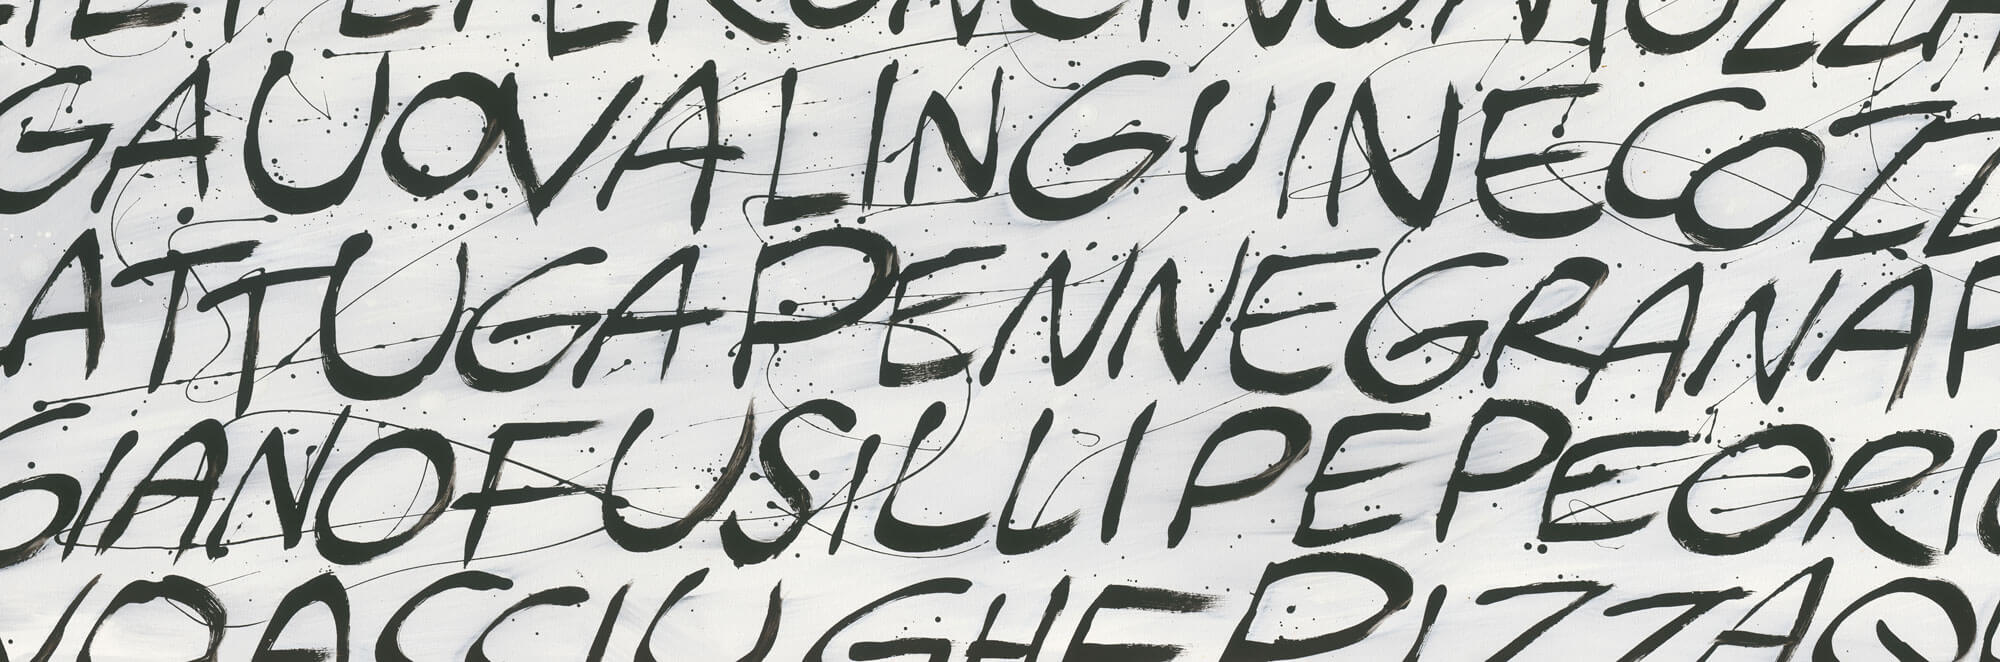 PEPERONCINO
GAUOVALINGUINECOZZ
ATTUGAPENNEGRANAP
GIANOFUSILLIPEPEORI
ACCIUGHEPIZZA